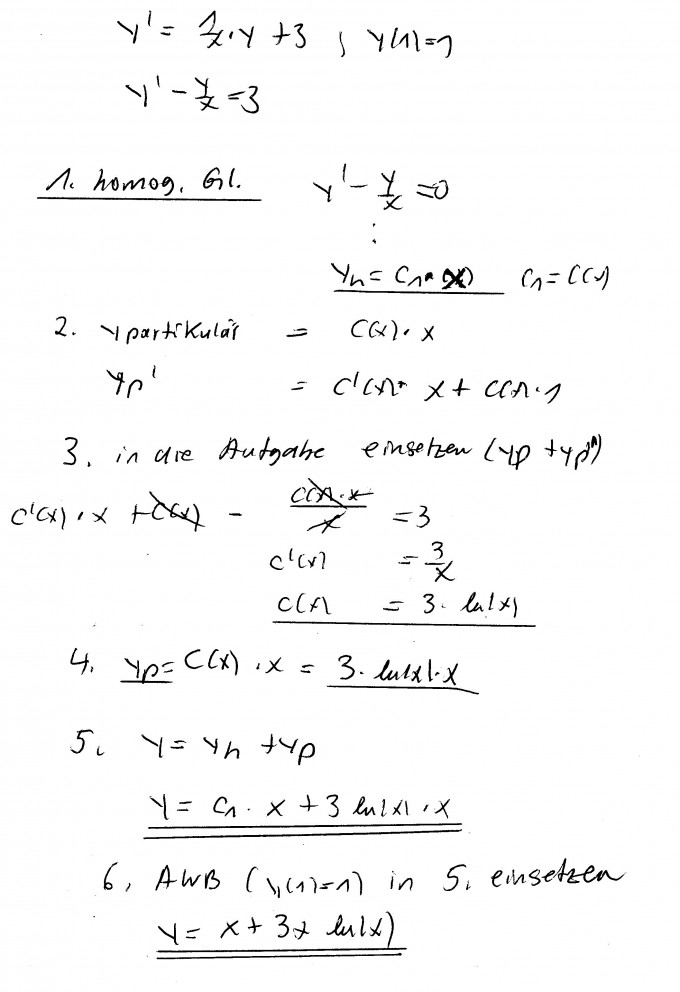 y' = 1/x · y + 3 ; y(1)=1
y' - y/x = 3
1. homog. Gl. y' - y/x = 0
⋮
yh = C1 · x C1 = C(x)
2. y partikulär = C(x) · x
yp' = C'(x) · x + C(x) · 1
3. in die Aufgabe einsetzen (yp + yp')
C'(x) · x + C(x) - C(x) · x / x = 3
C'(x) = 3/x
C(x) = 3 · ln|x|
4. yp = C(x) · x = 3 · ln|x| · x
5. y = yh + yp
y = C1 · x + 3 ln|x| · x
6, AWB (y(1)=1) in 5. einsetzen
y = x + 3x ln|x|